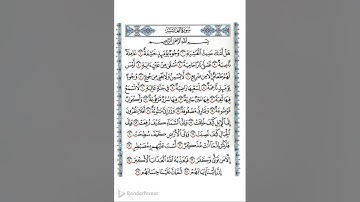 سُورَةُ الغَاشِيَةِ
بِسْمِ اللَّهِ الرَّحْمَٰنِ الرَّحِيمِ
هَلْ أَتَىٰكَ حَدِيثُ الْغَٰشِيَةِ ١ وُجُوهٌ يَوْمَئِذٍ خَٰشِعَةٌ ٢ عَامِلَةٌ
نَّاصِبَةٌ ٣ تَصْلَىٰ نَارًا حَامِيَةً ٤ تُسْقَىٰ مِنْ عَيْنٍ ءَانِيَةٍ ٥ لَّيْسَ
لَهُمْ طَعَامٌ إِلَّا مِن ضَرِيعٍ ٦ لَّا يُسْمِنُ وَلَا يُغْنِي مِن جُوعٍ ٧ وُجُوهٌ
يَوْمَئِذٍ نَّاعِمَةٌ ٨ لِّسَعْيِهَا رَاضِيَةٌ ٩ فِي جَنَّةٍ عَالِيَةٍ ١٠ لَّا تَسْمَعُ
فِيهَا لَٰغِيَةً ١١ فِيهَا عَيْنٌ جَارِيَةٌ ١٢ فِيهَا سُرُرٌ مَّرْفُوعَةٌ ١٣ وَأَكْوَابٌ
مَّوْضُوعَةٌ ١٤ وَنَمَارِقُ مَصْفُوفَةٌ ١٥ وَزَرَابِيُّ مَبْثُوثَةٌ ١٦ أَفَلَا يَنظُرُونَ
إِلَى الْإِبِلِ كَيْفَ خُلِقَتْ ١٧ وَإِلَى السَّمَاءِ كَيْفَ رُفِعَتْ ١٨ وَإِلَى
الْجِبَالِ كَيْفَ نُصِبَتْ ١٩ وَإِلَى الْأَرْضِ كَيْفَ سُطِحَتْ ٢٠
فَذَكِّرْ إِنَّمَا أَنتَ مُذَكِّرٌ ٢١ لَّسْتَ عَلَيْهِم بِمُصَيْطِرٍ ٢٢
إِلَّا مَن تَوَلَّىٰ وَكَفَرَ ٢٣ فَيُعَذِّبُهُ اللَّهُ الْعَذَابَ الْأَكْبَرَ ٢٤
إِنَّ إِلَيْنَا إِيَابَهُمْ ٢٥ ثُمَّ إِنَّ عَلَيْنَا حِسَابَهُم ٢٦
Renderforest